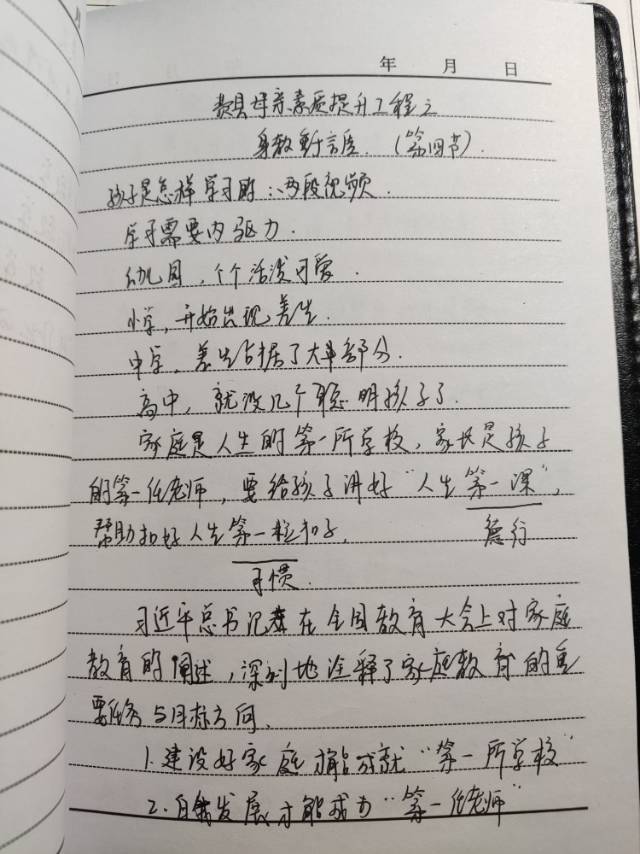 年 月 日
教具母亲素质提升工程之
身教重于言传.（第四节）.
孩子是怎样学习的：两段视频.
学习需要内驱力.
幼儿园，个个活泼可爱.
小学，开始出现差生.
中学，差生占据了大半部分.
高中，就没几个聪明孩子了.
家庭是人生的第一所学校，家长是孩子
的第一任老师，要给孩子讲好“人生第一课”，
帮助扣好人生第一粒扣子. 德行
习惯.
习近平总书记在全国教育大会上对家庭
教育的阐述，深刻地诠释了家庭教育的重
要任务与目标方向.
1.建设好家庭才能成就“第一所学校”
2.自我发展才能成为“第一任老师”